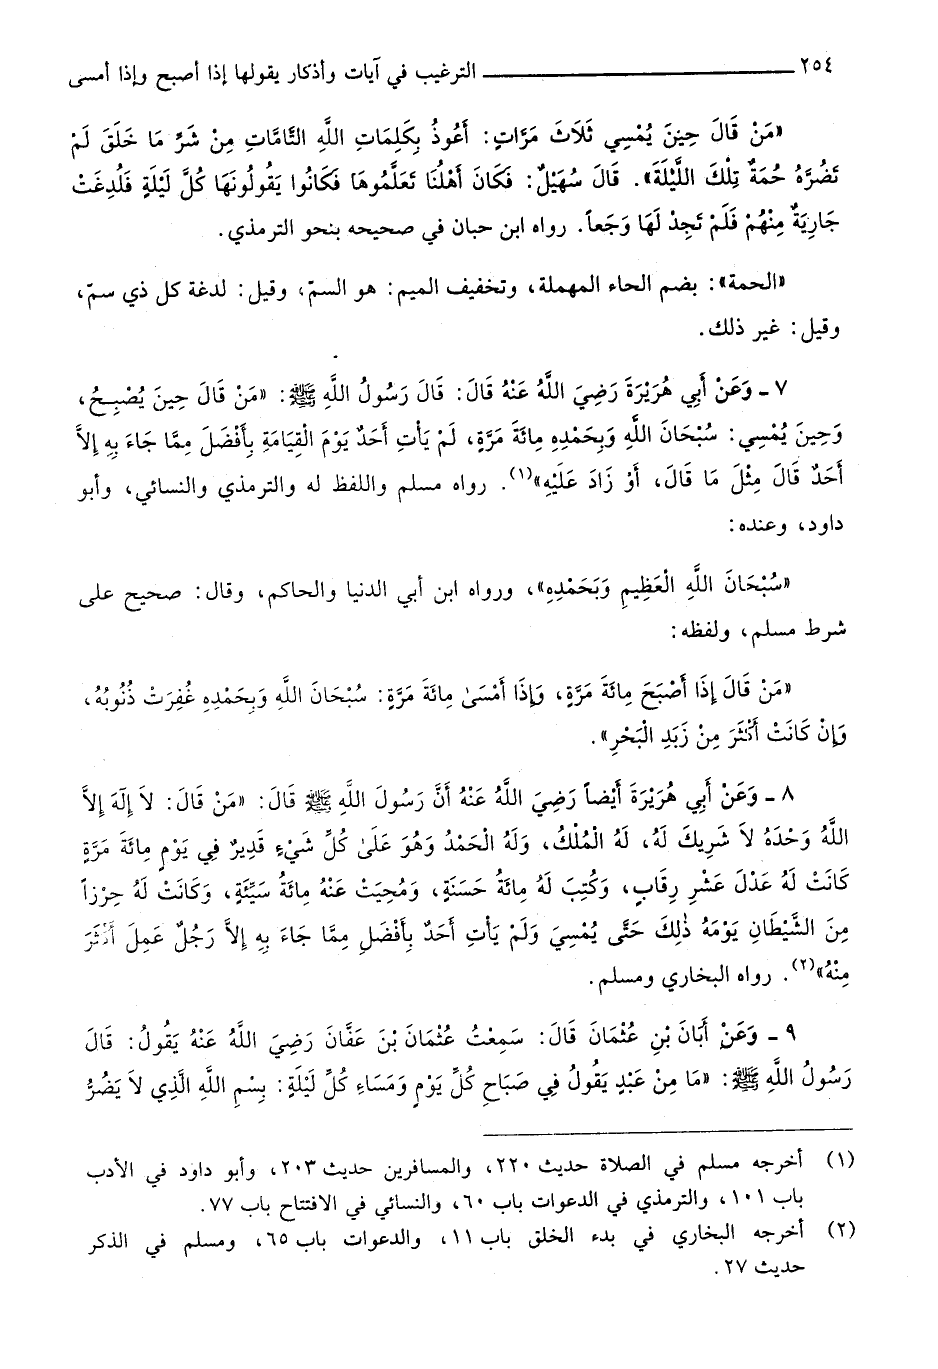 ٢٥٤ ــــــــــــــــ الترغيب في آيات وأذكار يقولها إذا أصبح وإذا أمسى
«مَنْ قَالَ حِينَ يُمْسِي ثَلَاثَ مَرَّاتٍ: أَعُوذُ بِكَلِمَاتِ اللَّهِ التَّامَّاتِ مِنْ شَرِّ مَا خَلَقَ لَمْ
تَضُرَّهُ حُمَةٌ تِلْكَ اللَّيْلَةَ». قَالَ سُهَيْلٌ: فَكَانَ أَهْلُنَا تَعَلَّمُوهَا فَكَانُوا يَقُولُونَهَا كُلَّ لَيْلَةٍ فَلُدِغَتْ
جَارِيَةٌ مِنْهُمْ فَلَمْ تَجِدْ لَهَا وَجَعاً. رواه ابن حبان في صحيحه بنحو الترمذي.
«الحمة»: بضم الحاء المهملة، وتخفيف الميم: هو السمّ، وقيل: لدغة كل ذي سمّ،
وقيل: غير ذلك.
٧ ـ وَعَنْ أَبِي هُرَيْرَةَ رَضِيَ اللَّهُ عَنْهُ قَالَ: قَالَ رَسُولُ اللَّهِ ﷺ: «مَنْ قَالَ حِينَ يُصْبِحُ،
وَحِينَ يُمْسِي: سُبْحَانَ اللَّهِ وَبِحَمْدِهِ مِائَةَ مَرَّةٍ، لَمْ يَأْتِ أَحَدٌ يَوْمَ الْقِيَامَةِ بِأَفْضَلَ مِمَّا جَاءَ بِهِ إِلاَّ
أَحَدٌ قَالَ مِثْلَ مَا قَالَ، أَوْ زَادَ عَلَيْهِ»(١). رواه مسلم واللفظ له والترمذي والنسائي، وأبو
داود، وعنده:
«سُبْحَانَ اللَّهِ الْعَظِيمِ وَبَحَمْدِهِ»، ورواه ابن أبي الدنيا والحاكم، وقال: صحيح على
شرط مسلم، ولفظه:
«مَنْ قَالَ إِذَا أَصْبَحَ مِائَةَ مَرَّةٍ، وَإِذَا أَمْسَىٰ مِائَةَ مَرَّةٍ: سُبْحَانَ اللَّهِ وَبِحَمْدِهِ غُفِرَتْ ذُنُوبُهُ،
وَإِنْ كَانَتْ أَكْثَرَ مِنْ زَبَدِ الْبَحْرِ».
٨ ـ وَعَنْ أَبِي هُرَيْرَةَ أَيْضاً رَضِيَ اللَّهُ عَنْهُ أَنَّ رَسُولَ اللَّهِ ﷺ قَالَ: «مَنْ قَالَ: لاَ إِلَهَ إِلاَّ
اللَّهُ وَحْدَهُ لاَ شَرِيكَ لَهُ، لَهُ الْمُلْكُ، وَلَهُ الْحَمْدُ وَهُوَ عَلَىٰ كُلِّ شَيْءٍ قَدِيرٌ فِي يَوْمٍ مِائَةَ مَرَّةٍ
كَانَتْ لَهُ عَدْلَ عَشْرِ رِقَابٍ، وَكُتِبَ لَهُ مِائَةُ حَسَنَةٍ، وَمُحِيَتْ عَنْهُ مِائَةُ سَيِّئَةٍ، وَكَانَتْ لَهُ حِرْزاً
مِنَ الشَّيْطَانِ يَوْمَهُ ذٰلِكَ حَتَّى يُمْسِيَ وَلَمْ يَأْتِ أَحَدٌ بِأَفْضَلِ مِمَّا جَاءَ بِهِ إِلاَّ رَجُلٌ عَمِلَ أَكْثَرَ
مِنْهُ»(٢). رواه البخاري ومسلم.
٩ ـ وَعَنْ أَبَانَ بْنِ عُثْمَانَ قَالَ: سَمِعْتُ عُثْمَانَ بْنَ عَفَّانَ رَضِيَ اللَّهُ عَنْهُ يَقُولُ: قَالَ
رَسُولُ اللَّهِ ﷺ: «مَا مِنْ عَبْدٍ يَقُولُ فِي صَبَاحِ كُلِّ يَوْمٍ وَمَسَاءِ كُلِّ لَيْلَةٍ: بِسْمِ اللَّهِ الَّذِي لاَ يَضُرُّ
(١) أخرجه مسلم في الصلاة حديث ٢٢٠، والمسافرين حديث ٢٠٣، وأبو داود في الأدب
باب ١٠١، والترمذي في الدعوات باب ٦٠، والنسائي في الافتتاح باب ٧٧.
(٢) أخرجه البخاري في بدء الخلق باب ١١، والدعوات باب ٦٥، ومسلم في الذكر
حديث ٢٧.